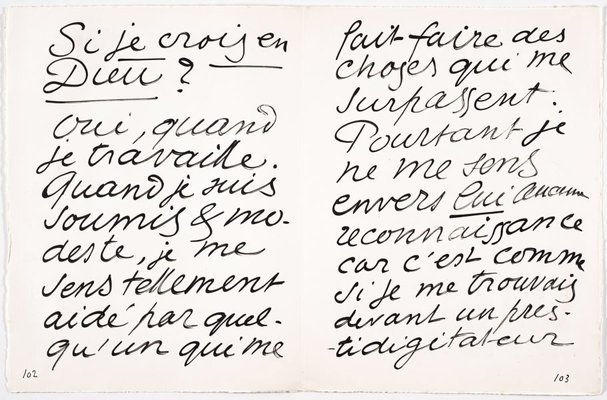 Si je crois en
Dieu ?
Oui, quand
je travaille.
Quand je suis
soumis & mo-
deste, je me
sens tellement
aidé par quel-
qu'un qui me
102
fait faire des
choses qui me
surpassent.
Pourtant je
ne me sens
envers lui aucune
reconnaissance
car c'est comme
si je me trouvais
devant un pres-
-tidigitateur
103